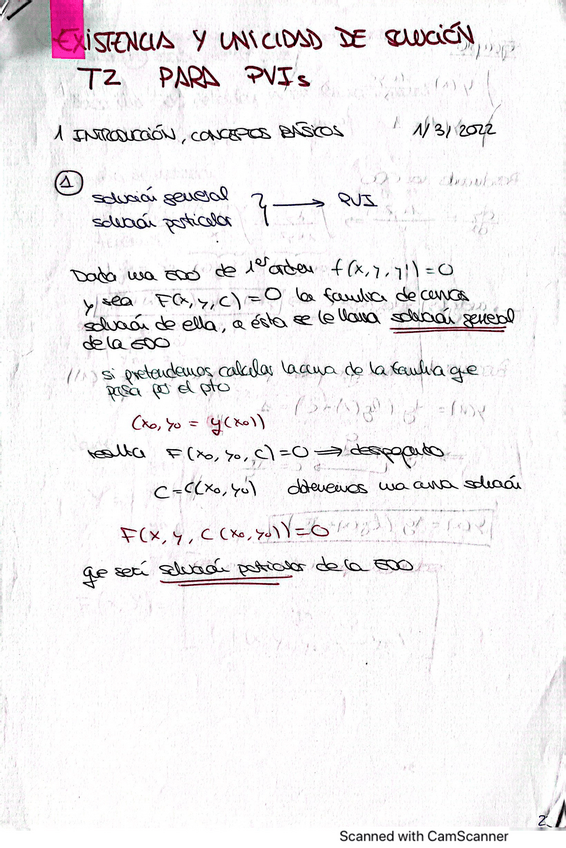 EXISTENCIA Y UNICIDAD DE SOLUCIÓN
T2 PARA PVIs
1 INTRODUCCIÓN, CONCEPTOS BÁSICOS 1/3/2022
1
solución general
solución particular } → PVI
Dada una EDO de 1er orden f(x,y,y')=0
y sea F(x,y,C)=0 la familia de curvas
solución de ella, a ésta se le llama solución general
de la EDO
si pretendemos calcular la curva de la familia que
pasa por el pto
(x₀,y₀ = y(x₀))
resulta F(x₀,y₀,C)=0 ⇒ despejando
C=C(x₀,y₀) obtenemos una curva solución
F(x,y,C(x₀,y₀))=0
que será solución particular de la EDO
2
Scanned with CamScanner